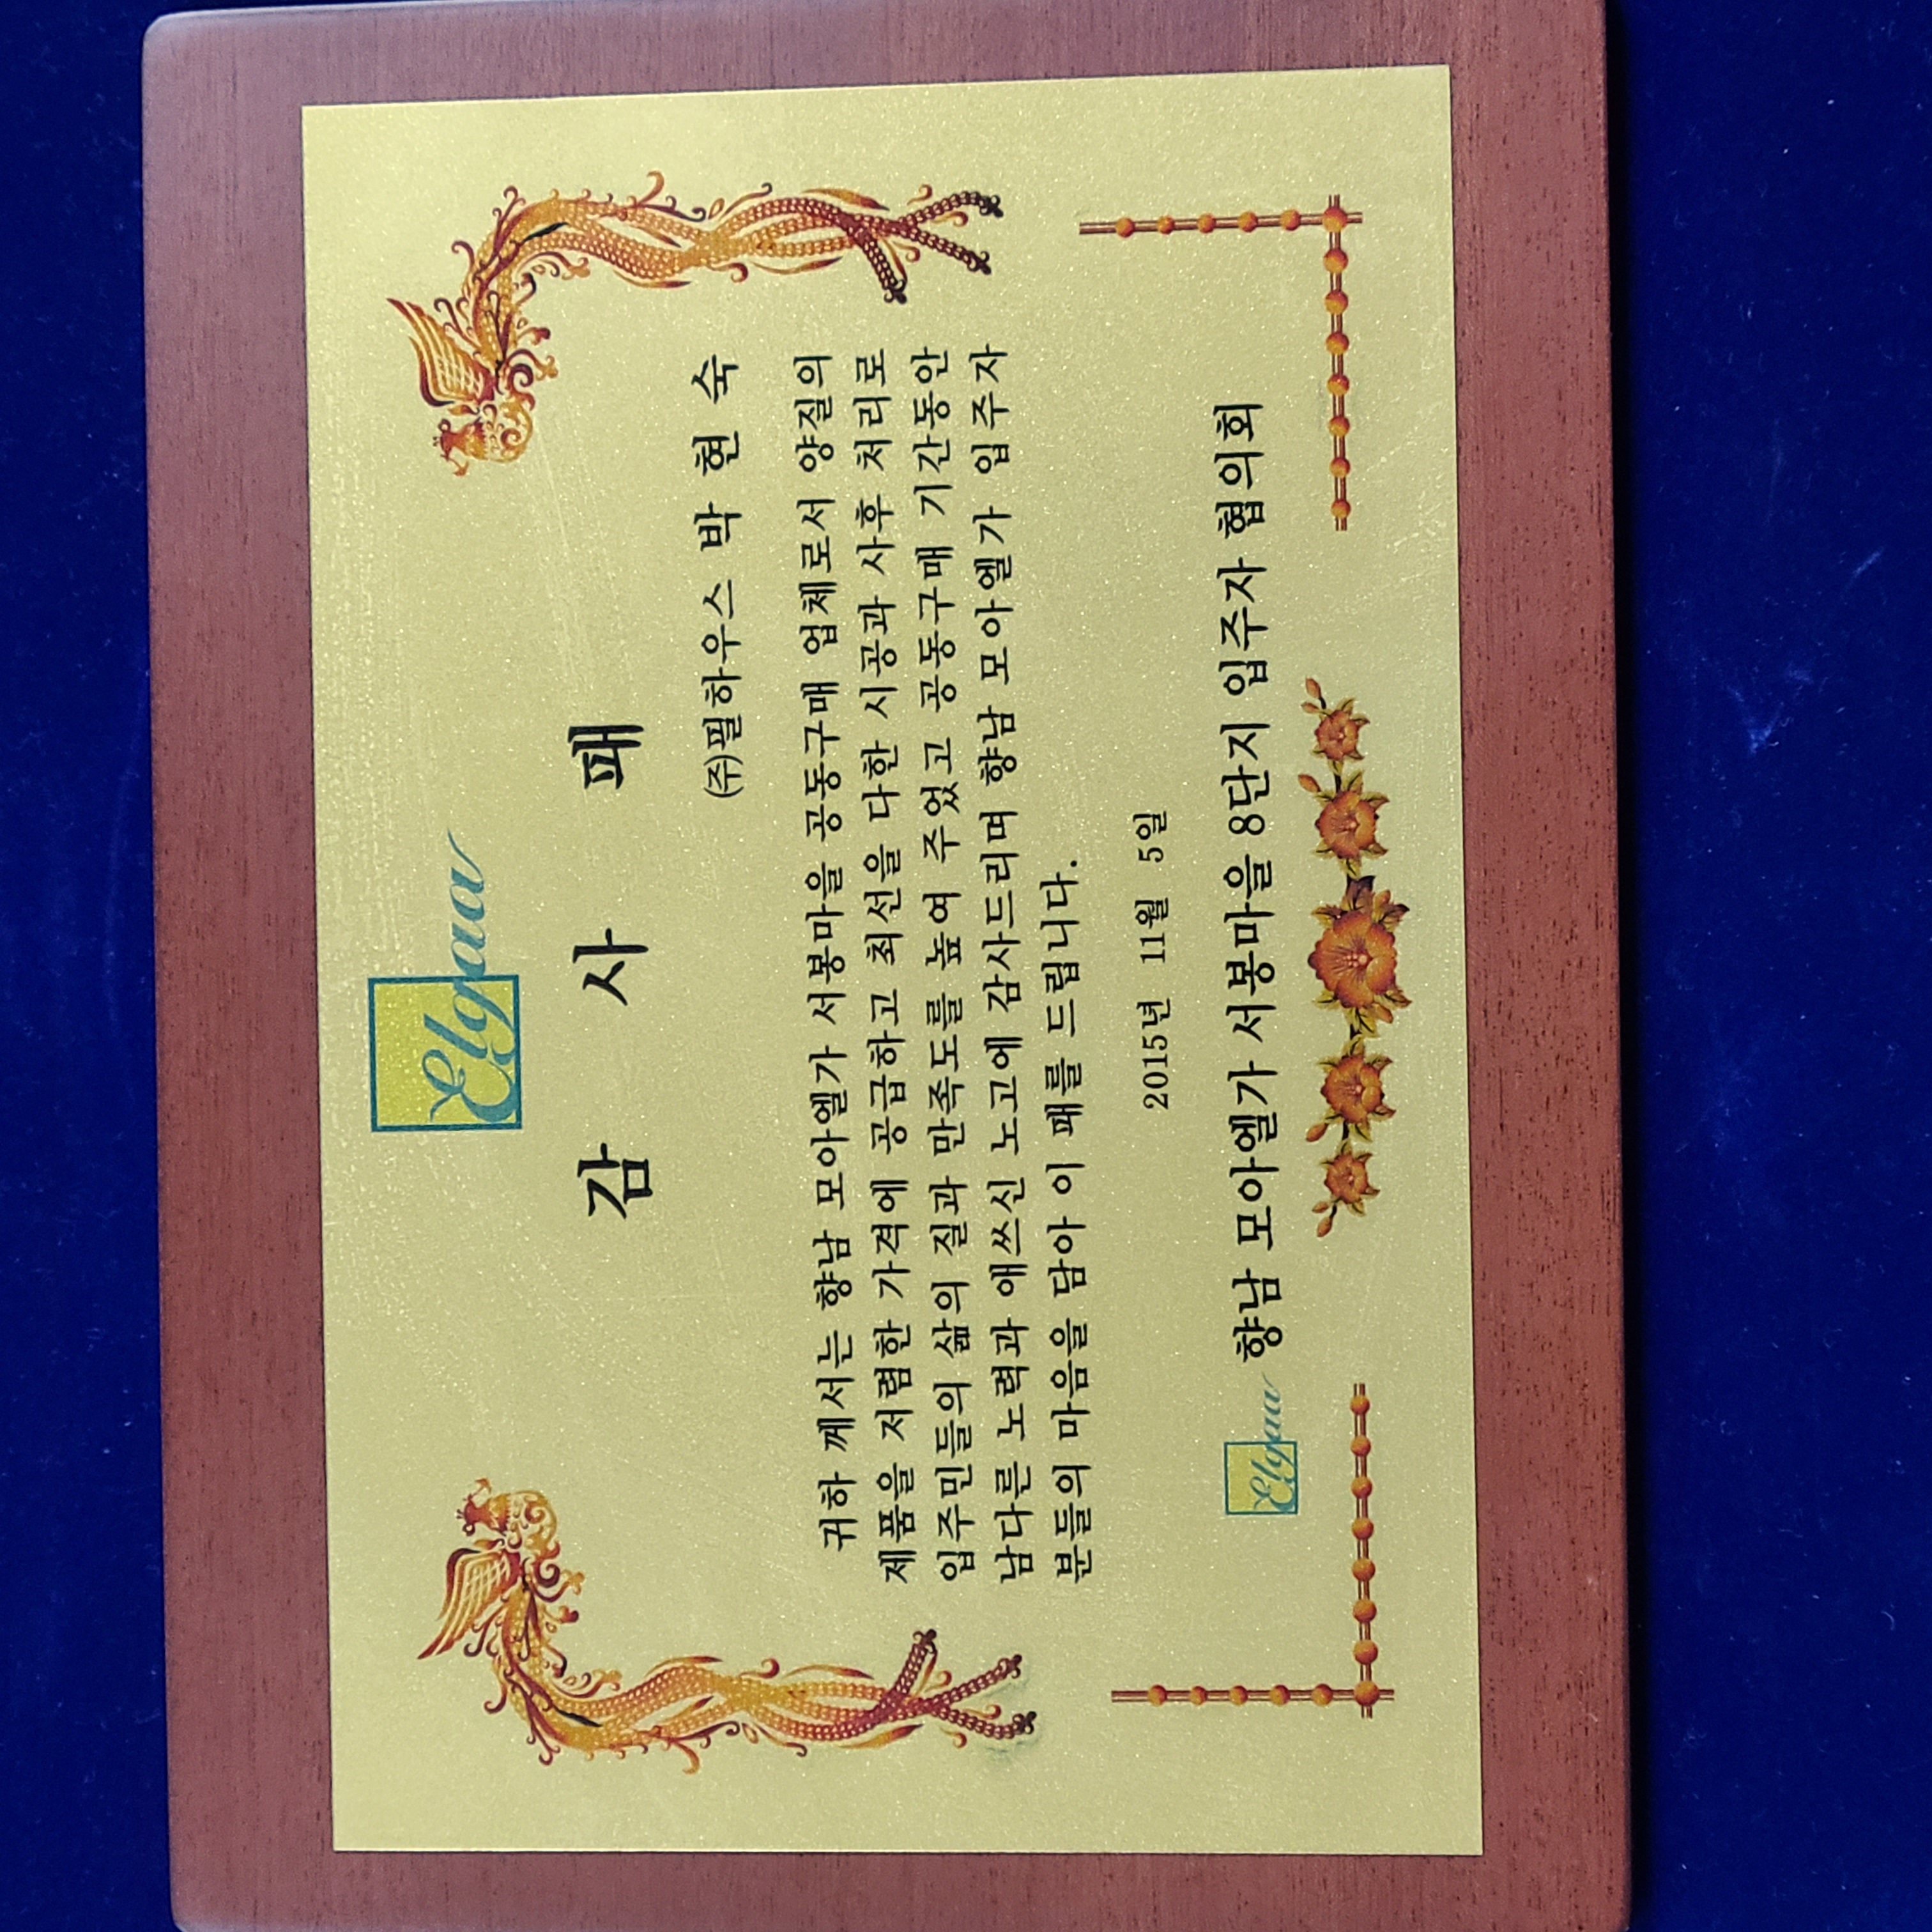 Elgaa
감 사 패
(주)필하우스 박 현 숙
귀하 께서는 향남 모아엘가 서봉마을 공동구매 업체로서 양질의
제품을 저렴한 가격에 공급하고 최선을 다한 시공과 사후 처리로
입주민들의 삶의 질과 만족도를 높여 주었고 공동구매 기간동안
남다른 노력과 애쓰신 노고에 감사드리며 향남 모아엘가 입주자
분들의 마음을 담아 이 패를 드립니다.
2015년 11월 5일
Elgaa 향남 모아엘가 서봉마을 8단지 입주자 협의회